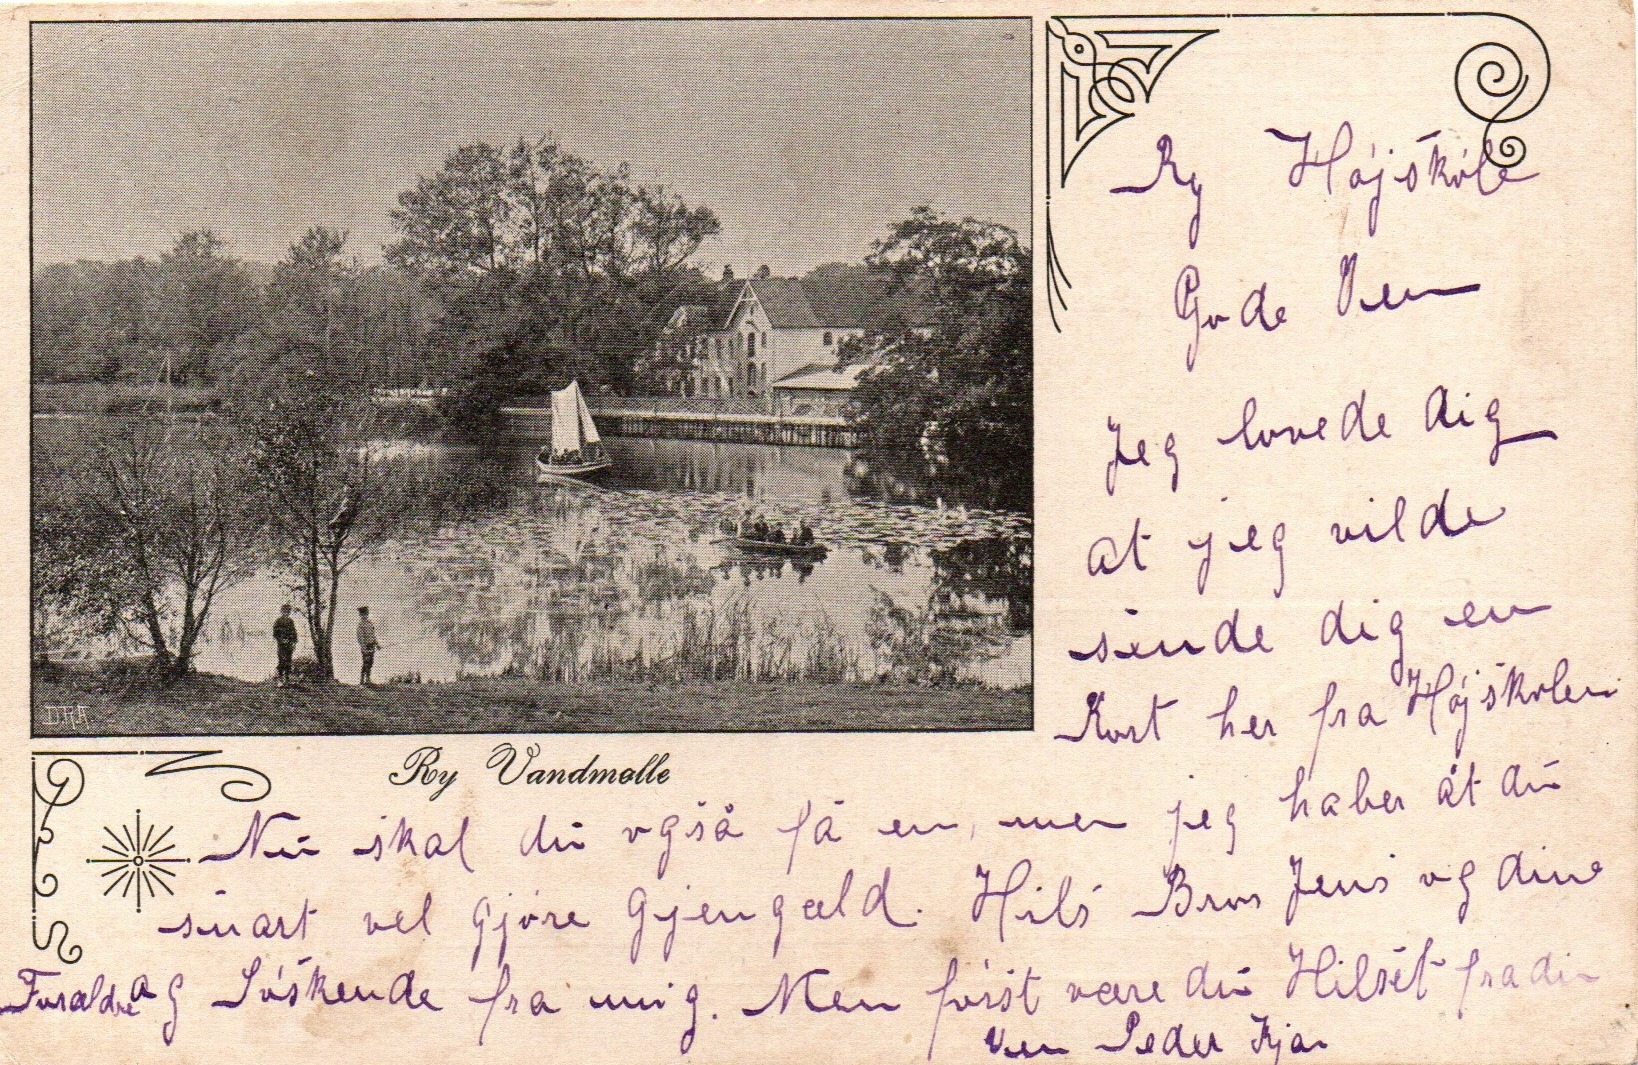 Ry Højskole
Gode Ven
Jeg lovede dig
at jeg vilde
sende dig en
Kort her fra Højskolen
DRA.
Ry Vandmølle
Nu skal du også få en, men jeg haber åt du
snart vel gjøre Gjengæld. Hils Bror Jens og dine
Forældre og Søskende fra mig. Men først være du Hilset fra din
Ven Peder Kjær